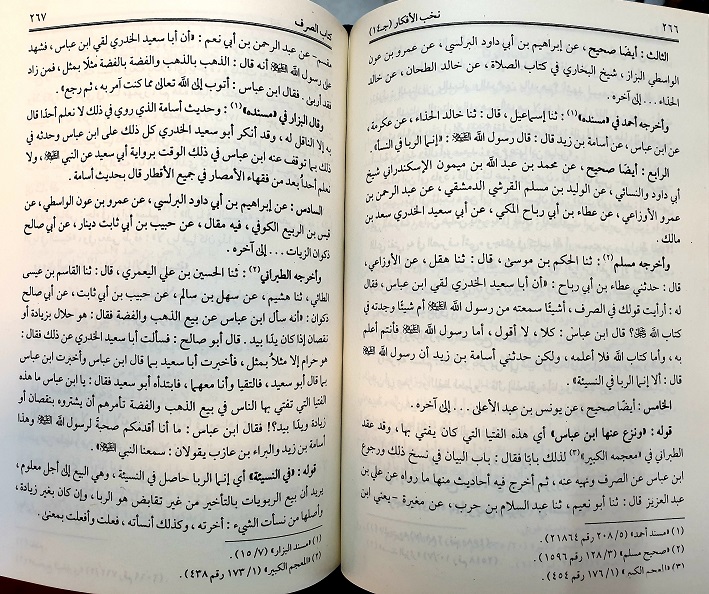 ٢٦٦
نخب الأفكار (جـ١٤)
الثالث: أيضًا صحيح، عن إبراهيم بن أبي داود البرلسي، عن عمرو بن عون
الواسطي البزاز، شيخ البخاري في كتاب الصلاة، عن خالد الطحان، عن خالد
الحذاء... إلى آخره.
وأخرجه أحمد في «مسنده»(١): ثنا إسماعيل، قال: ثنا خالد الحذاء، عن عكرمة،
عن ابن عباس، عن أسامة بن زيد قال: قال رسول الله ﷺ: «إنما الربا في النسأ».
الرابع: أيضًا صحيح، عن محمد بن عبد الله بن ميمون الإسكندراني شيخ
أبي داود والنسائي، عن الوليد بن مسلم القرشي الدمشقي، عن عبد الرحمن بن
عمرو الأوزاعي، عن عطاء بن أبي رباح المكي، عن أبي سعيد الخدري سعد بن
مالك.
وأخرجه مسلم(٢): ثنا الحكم بن موسى، قال: ثنا هقل، عن الأوزاعي،
قال: حدثني عطاء بن أبي رباح: «أن أبا سعيد الخدري لقي ابن عباس، فقال
له: أرأيت قولك في الصرف، أشيئًا سمعته من رسول الله ﷺ أم شيئًا وجدته في
كتاب الله ﷻ؟ قال ابن عباس: كلا، لا أقول، أما رسول الله ﷺ فأنتم أعلم
به، وأما كتاب الله فلا أعلمه، ولكن حدثني أسامة بن زيد أن رسول الله ﷺ
قال: ألا إنما الربا في النسيئة».
الخامس: أيضًا صحيح، عن يونس بن عبد الأعلى... إلى آخره.
قوله: «ونزع عنها ابن عباس» أي هذه الفتيا التي كان يفتي بها، وقد عقد
الطبراني في «معجمه الكبير»(٣) لذلك بابًا فقال: باب البيان في نسخ ذلك ورجوع
ابن عباس عن الصرف ونهيه عنه، ثم أخرج فيه أحاديث منها ما رواه عن علي بن
عبد العزيز قال: ثنا أبو نعيم، ثنا عبد السلام بن حرب، عن مغيرة -يعني ابن
(١) «مسند أحمد» (٥/ ٢٠٨ رقم ٢١٨٦٤).
(٢) «صحيح مسلم» (٣/ ١٢٨ رقم ١٥٩٦).
(٣) «المعجم الكبير» (١/ ١٧٦ رقم ٤٥٤).
كتاب الصرف
٢٦٧
مقسم- عن عبد الرحمن بن أبي نعم: «أن أبا سعيد الخدري لقي ابن عباس، فشهد
على رسول الله ﷺ أنه قال: الذهب بالذهب والفضة بالفضة مثلًا بمثل، فمن زاد
فقد أربى. فقال ابن عباس: أتوب إلى الله تعالى مما كنت آمر به، ثم رجع».
وقال البزار في «مسنده»(١): وحديث أسامة الذي روي في ذلك لا نعلم أحدًا قال
به إلا الناقل له، وقد أنكر أبو سعيد الخدري كل ذلك على ابن عباس وحدثه في
ذلك بما توقف عنه ابن عباس في ذلك الوقت برواية أبي سعيد عن النبي ﷺ، ولا
نعلم أحدًا بعد من فقهاء الأمصار في جميع الأقطار قال بحديث أسامة.
السادس: عن إبراهيم بن أبي داود البرلسي، عن عمرو بن عون الواسطي، عن
قيس بن الربيع الكوفي، فيه مقال، عن حبيب بن أبي ثابت دينار، عن أبي صالح
ذكوان الزيات... إلى آخره.
وأخرجه الطبراني(٢): ثنا الحسين بن علي اليعمري، قال: ثنا القاسم بن عيسى
الطائي، ثنا هشيم، عن سهل بن سالم، عن حبيب بن أبي ثابت، عن أبي صالح
ذكوان: «أنه سأل ابن عباس عن بيع الذهب والفضة فقال: هو حلال بزيادة أو
نقصان إذا كان يدًا بيد. قال أبو صالح: فسألت أبا سعيد الخدري عن ذلك فقال:
هو حرام إلا مثلًا بمثل، فأخبرت أبا سعيد بما قال ابن عباس وأخبرت ابن عباس
بما قال أبو سعيد، فالتقيا وأنا معهما، فابتدأه أبو سعيد فقال: يا ابن عباس ما هذه
الفتيا التي تفتي بها الناس في بيع الذهب والفضة تأمرهم أن يشتروه بنقصان أو
زيادة ويدًا بيد؟! فقال ابن عباس: ما أنا أقدمكم صحبة لرسول الله ﷺ وهذا
أسامة بن زيد والبراء بن عازب يقولان: سمعنا النبي ﷺ».
قوله: «في النسيئة» أي إنما الربا حاصل في النسيئة، وهي البيع إلى أجل معلوم،
يريد أن بيع الربويات بالتأخير من غير تقابض هو الربا، وإن كان بغير زيادة،
وأصلها من نسأت الشيء: أخرته، وكذلك أنسأته، فعلت وأفعلت بمعنى.
(١) «مسند البزار» (٧/ ١٥).
(٢) «المعجم الكبير» (١/ ١٧٣ رقم ٤٣٨).